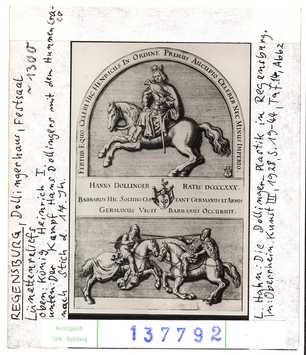 REGENSBURG, Dollingerhaus, Festsaal
~ 1300
Lünettenreliefs
oben: König Heinrich I.
unten: Der Kampf Hans Dollingers mit dem Hunnen Craco
nach Stich d. 17. Jh.
FERTUR EQUO CELER HIC HENRICUS IN ORDINE PRIMUS AUCUPIO CELEBER NEC MINUS IMPERIO
HANNS DOLLINGER RATIS: DCCCCXXX.
BARBARUS HIC SOLIDIS CERTANT GERMANUS ET ARMIS
GERMANUS VICIT BARBARUS OCCUBUIT.
L. Hahn: Die Dollinger Plastik in Regensburg.
In: Oberrhein. Kunst III, 1928, S. 19-44, Taf. 14, Abb 2
Kunstgesch.
Sem. Hamburg
137792